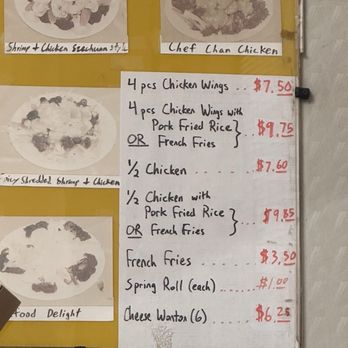 Shrimp & Chicken Szechuan Style
Chef Chan Chicken
Shredded Shrimp & Chicken
Delight
4 pcs Chicken Wings .. $7.50
4 pcs Chicken Wings with
Pork Fried Rice
OR French Fries } .. $9.75
1/2 Chicken ..... $7.60
1/2 Chicken with
Pork Fried Rice
OR French Fries } ... $9.85
French Fries .... $3.50
Spring Roll (each) .... $1.00
Cheese Wonton (6) .... $6.25